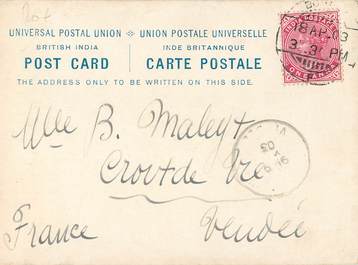 UNIVERSAL POSTAL UNION ✦ UNION POSTALE UNIVERSELLE
BRITISH INDIA INDE BRITANNIQUE
POST CARD CARTE POSTALE
THE ADDRESS ONLY TO BE WRITTEN ON THIS SIDE.
INDIA POSTAGE
ONE ANNA
18 AP 03
3-31 PM
Mlle B.
Croix de Vie
France Vendée